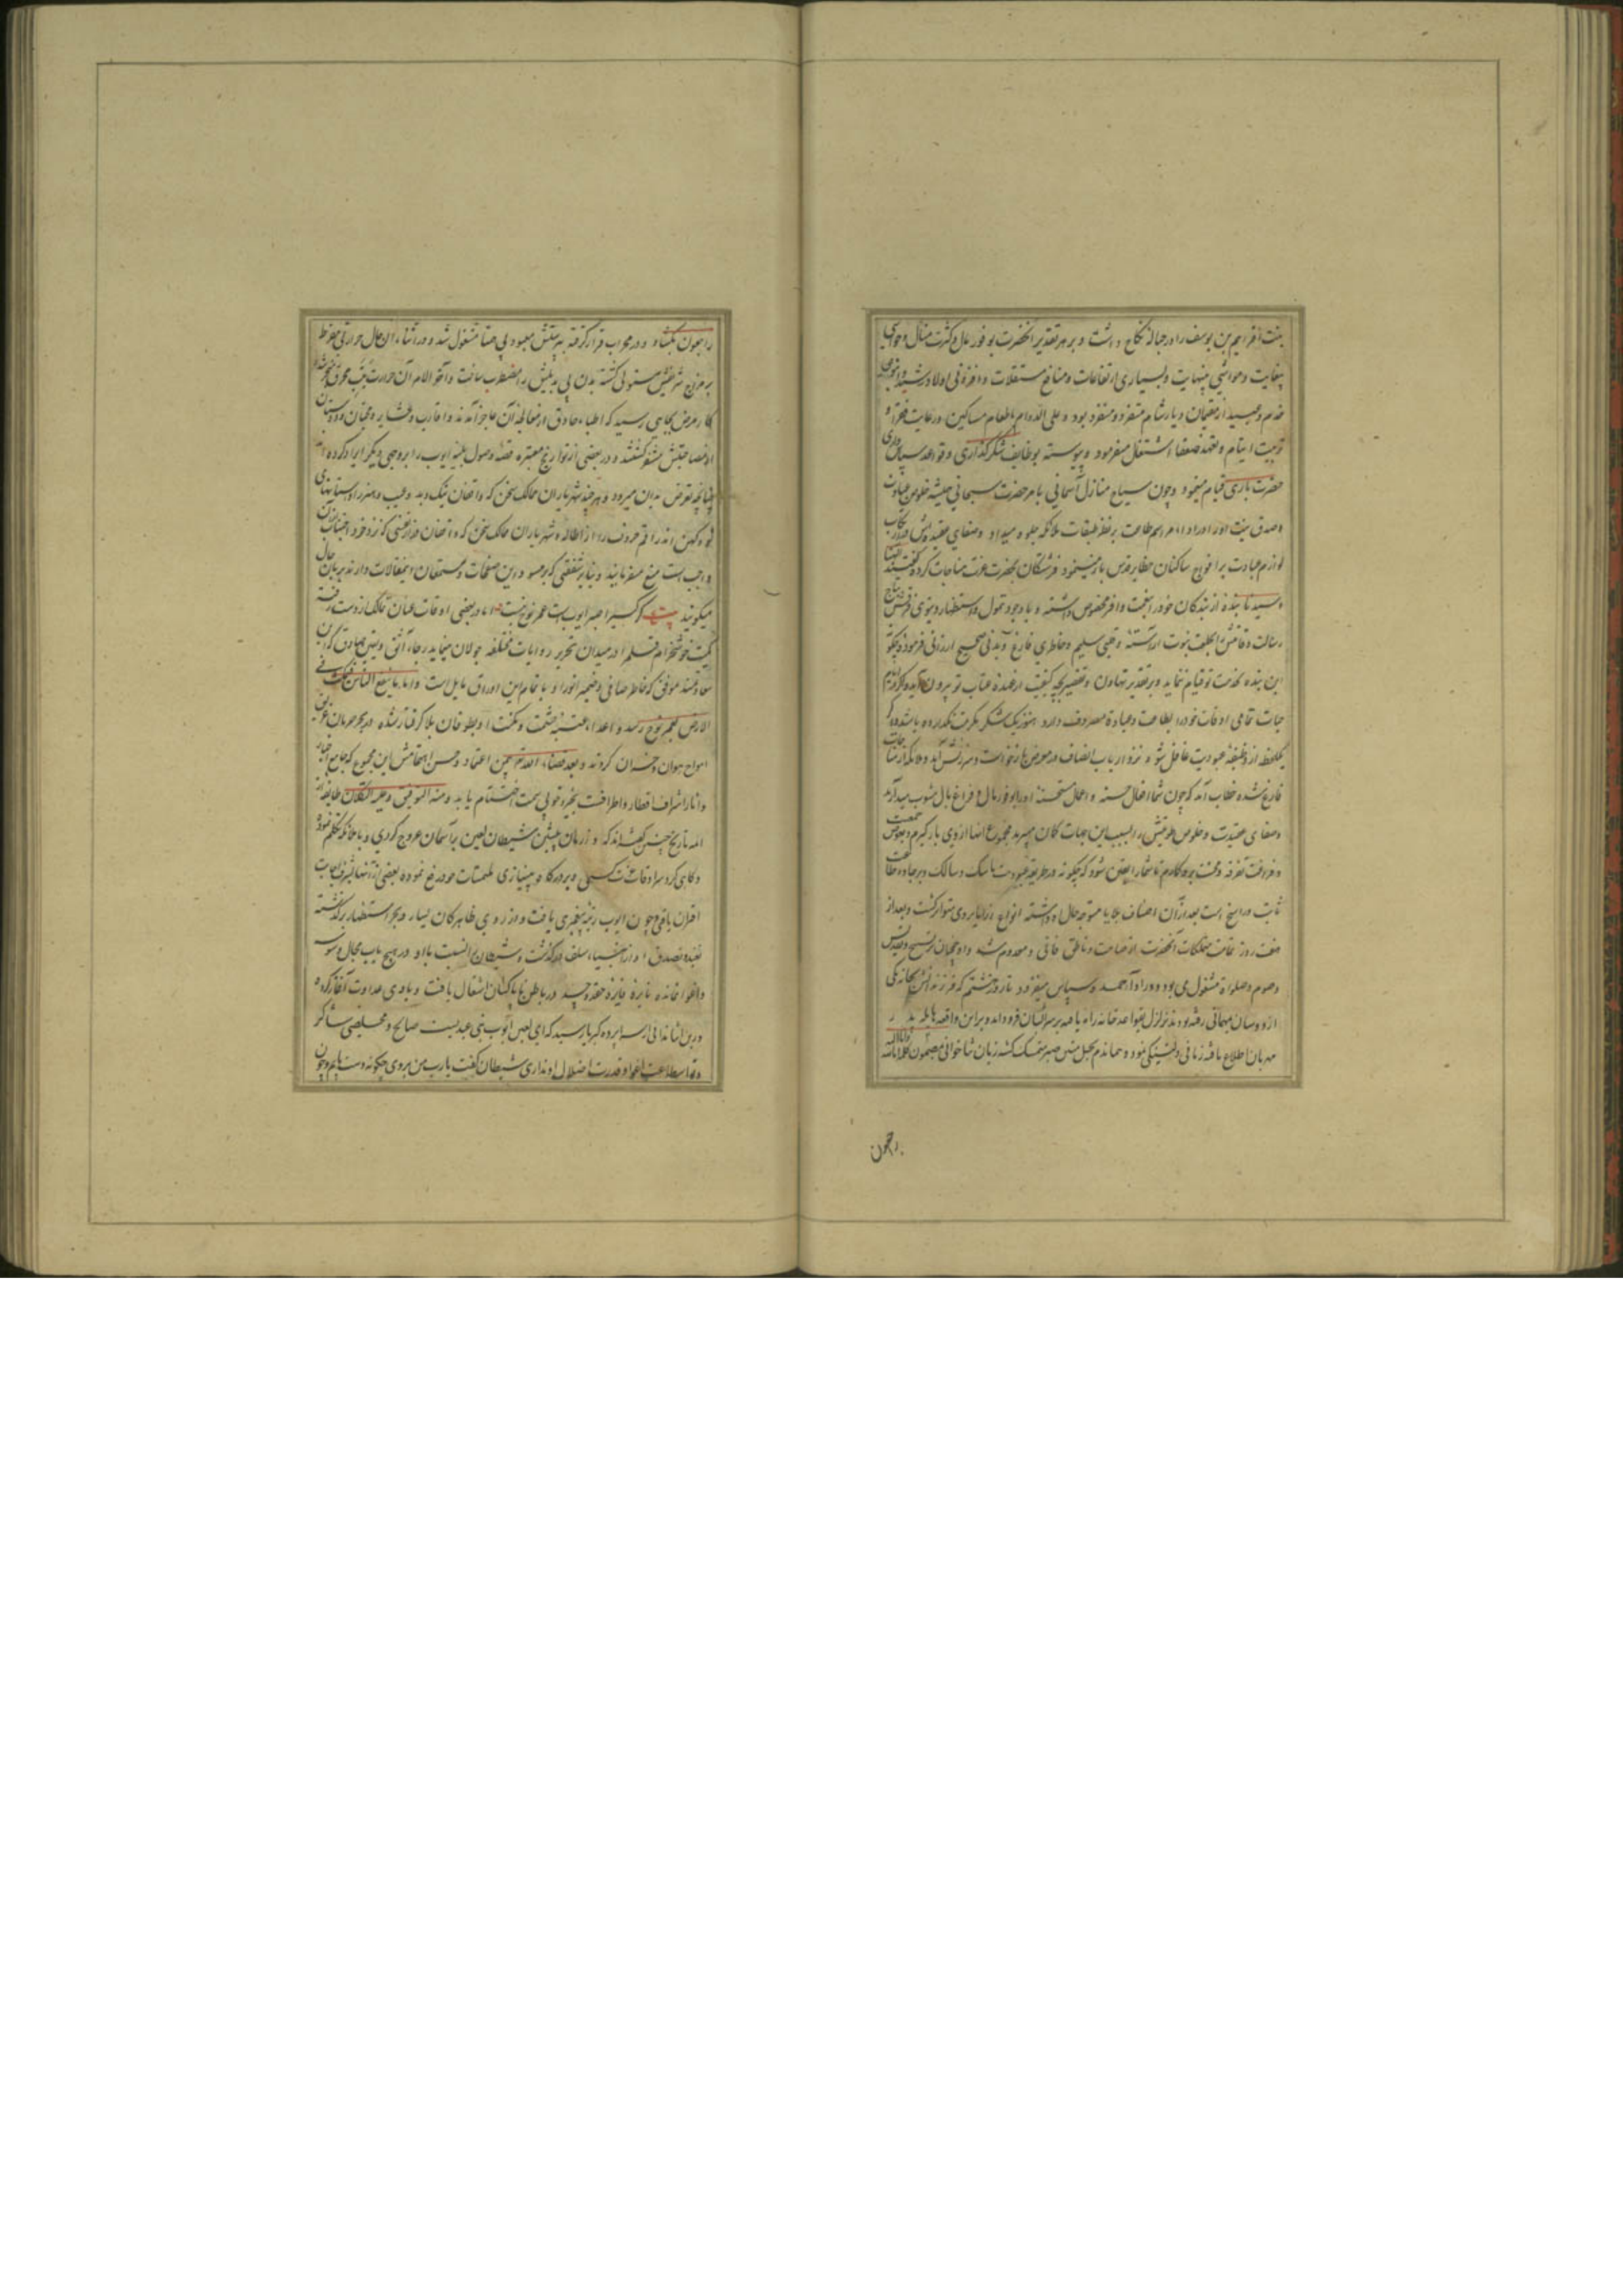 بنت افرایم بن یوسف را در حباله نکاح داشت و بر هر تقدیر آنحضرت بوفور مال و کثرت منال و حواشی
بیغایت و مواشی بینهایت و بسیاری ارتفاعات و منافع مستغلات و افزونی اولاد رشید و
خدم و عبید از مقیمان دیار شام متفرد و منفرد بود و علی الدوام باطعام مساکین و رعایت فقرا و
تربیت ایتام و تعهد ضعفا اشتغال میفرمود و پیوسته بوظایف شکر گذاری و قواعد سپاس داری
حضرت باری قیام مینمود و چون سیاح منازل آسمانی بامر حضرت سبحانی همیشه خلوص عبادت
و صدق نیت او را در ادای مراسم طاعت بر نظر طبقات ملائکه جلوه میداد و صفای عقیدتش در ارتکاب
لوازم عبادت بر افواج ساکنان حظایر قدس باز مینمود فرشتگان بحضرت عزت مناجات کرده گفتند الهنا
و سیدنا بنده از بندگان خود را بنعمت وافر مخصوص داشته و با وجود تمول و استظهار دنیوی فرقش بتاج
رسالت و قامتش بخلعت نبوت آراسته و قلبی سلیم و خاطری فارغ و بدنی صحیح ارزانی فرموده چگونه
این بنده بخدمت تو قیام ننماید و بر تقدیر تهاون و تقصیر بچه کیفیت از عهده عتاب تو بیرون آید و اگر در ایام
حیات تمامی اوقات خود را بطاعت و عبادت مصروف دارد هنوز یک شکر نعمت نگذارده باشد و اگر
یکلحظه از وظیفه عبودیت غافل شود نزد ارباب انصاف در معرض بازخواست و سرزنش آید و ملائکه از مناجات
فارغ شده خطاب آمد که چون شما افعال حسنه و اعمال مستحسنه او را بوفور مال و فراغ بال منسوب میدارید
و صفای عقیدت و خلوص طویتش را بسبب این جهات گمان میبرید مجموع اینها از وی بازگیرم و بعوض جمعیت
و فراغت تفرقه و محنت بروی گمارم تا شما را یقین شود که چگونه در طریقه عبودیت ناسک و سالک و بر جاده طاعت
ثابت و راسخ است بعد از آن اصناف بلایا متوجه حال او گشته انواع رزایا بر وی متواتر گشت و بعد از
هفت روز تمامت متملکات آنحضرت از صامت و ناطق فانی و معدوم شد و او همچنان بتسبیح و تقدیس
و صوم و صلوة مشغول می بود و اوراد حمد و سپاس میفزود تا روز هشتم که فرزندانش بخانه یکی
از دوستان بمهمانی رفته بودند تزلزل بقواعد خانه راه یافته بر سر ایشان فرود آمد و بر این واقعه هایله پدر
مهربان اطلاع یافته زمانی دلتنگی نمود و هماندم بحبل متین صبر متمسک گشته زبان ثناخوانی بمضمون کلمه انا لله و انا الیه
راجعون
راجعون بگشاد و در محراب قرار گرفته به پرستش معبود بی همتا مشغول شد و در اثنای آن حال حرارتی مفرط
بر مزاج شریفش مستولی گشته بدن بی بدیلش را مضطرب ساخت و آخر الامر آن حرارت بتب محرق
کار مرض بجایی رسید که اطباء حاذق از معالجه آن عاجز آمدند و اقارب و عشایر و محبان و دوستان
از مصاحبتش متنفر گشتند و در بعضی از تواریخ معتبره قصه وصول بلیه ایوب را بر وجهی دیگر ایراد کرده اند
چنانچه تعرض بدان میرود و هر چند شهریاران ممالک سخن که واقفان نیک و بد و عیب و هنر داستانهای
نو و کهن اند راقم حروف را از اطاله
واجب است منع میفرمایند و بنابر شفقتی که بر مسوده این صفحات و مستمعان این مقالات دارند بزبان حال
میگویند بیت گر کسی را صبر ایوب است عمر نوح نیست اما در بعضی اوقات عنان تمالک از دست رفته
کمیت خوشخرام قلم در میدان تحریر روایات مختلفه جولان مینماید رجاء واثق و یقین صادق که آن
سعادتمند موفق که خاطر صافی و ضمیر انور او باتمام این اوراق مایل است و اما ما ینفع الناس فیمکث فی
الارض بعمر نوح رسد و اعداء عتبه حشمت و مکنت او بطوفان بلا گرفتار شده در بحر حرمان غریق
امواج هوان و خسران گردند و بعد هذا اللهم بیمن اعتماد و حسن اهتمامش این مجموع که جامع اخبار
و آثار اشراف اقطار و اطراف است بخیر و خوبی سمت اختتام یابد و منه التوفیق و علیه التکلان طایفه از
ائمه تاریخ چنین گفته اند که در ازمان پیشین شیطان لعین بر آسمان عروج کردی و با ملائکه تکلم نمودی
و گاهی گرد سرادقات عزت گشتی و بدرگاه بینیازی ملتمسات خود رفع نموده بعضی از آنها بشرف اجابت
اقتران یافتی و چون ایوب رتبه پیغمبری یافت و از روی ظاهر کان یسار و بحر استظهار گشته
و اغوا نمانده نایره حقد و حسد در باطن ناپاکش اشتعال یافت و بادی عداوت آغاز کرده
در این اثنا ندائی از سراپرده کبریا رسید که ای لعین ایوب نبی عبدیست صالح و مخلصی شاکر
و تو استطاعت اغوا و قدرت اضلال او نداری شیطان گفت یا رب من بر وی چگونه دست یابم و چون